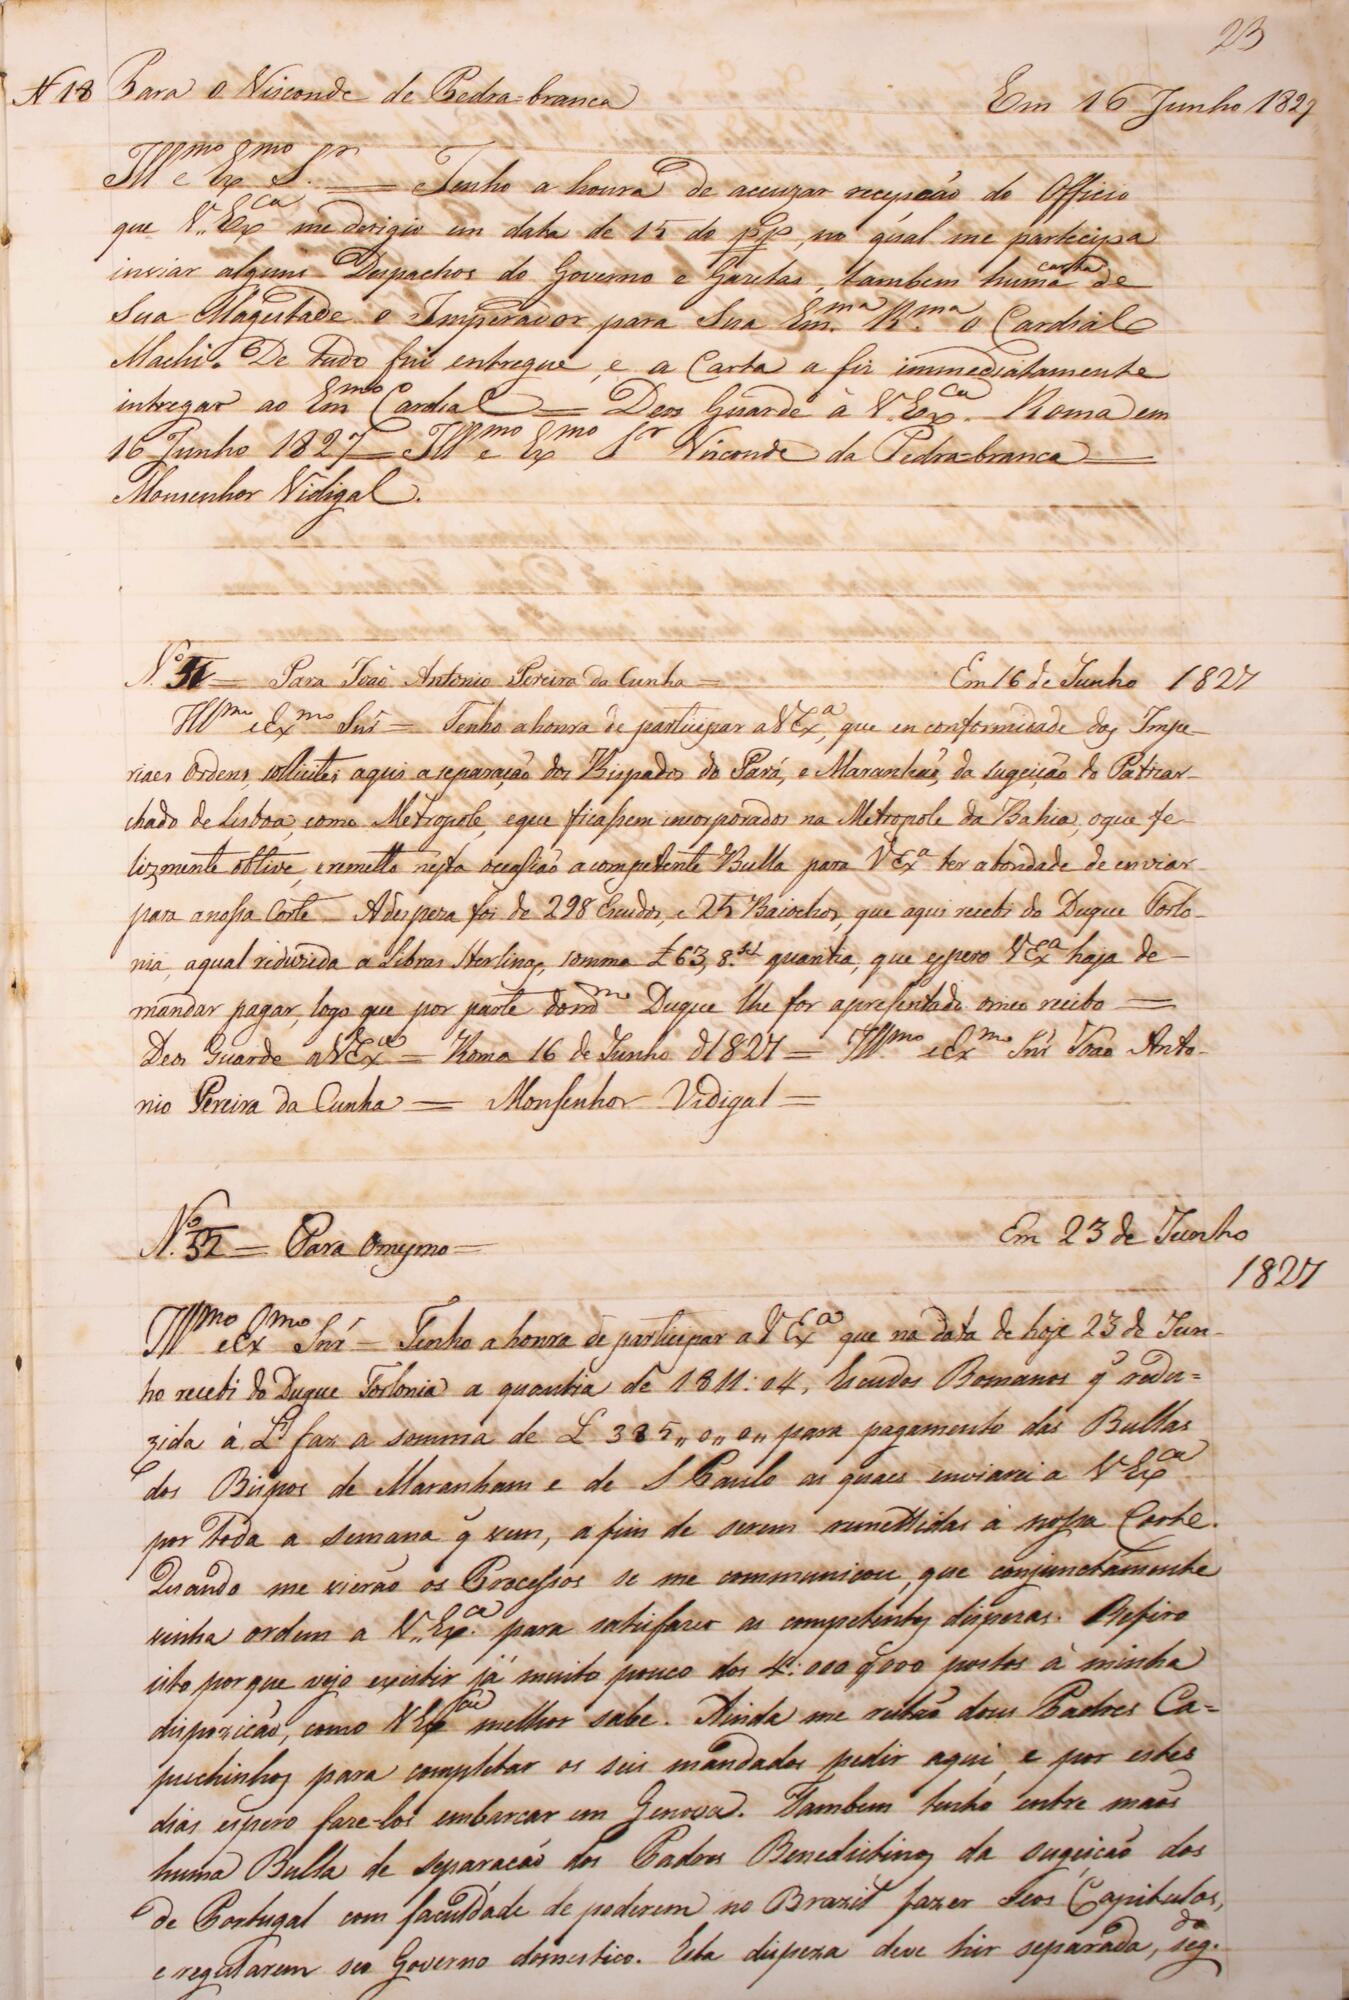 23
N 18 Para o Visconde de Pedra=branca Em 16 Junho 1827
Illmo e Exmo Sr. — Tenho a honra de accuzar recepção do Officio
que V.. Exca me derigio em data de 15 do pp, no qual me participa
inviar alguns Despachos do Governo e Gazetas, tambem huma carta de
Sua Magestade o Imperador para Sua Emma Rma o Cardial
Machi. De tudo fui entregue, e a Carta a fiz immediatamente
intregar ao Emmo Cardial = Deos Guarde à V. Exca. Roma em
16 Junho 1827 = Illmo e Exmo Sr Visconde da Pedra=branca —
Monsenhor Vidigal.
No. 31 = Para João Antonio Pereira da Cunha = Em 16 de Junho 1827
Illmo e Exmo Snr = Tenho a honra de participar a V Exa, que em conformidade das Impe-
riaes Ordens, sollicitei aqui a separação dos Bispados do Pará, e Maranhão, da sugeição do Patriar-
chado de Lisboa, como Metropole, e que ficassem incorporados na Metropole da Bahia, o que fe-
lizmente obtive, e remetto nesta occasião a competente Bulla para V Exa ter a bondade de enviar
para a nossa Corte. A despeza foi de 298 Escudos, e 25 Baiochos, que aqui recebi do Duque Torlo-
nia, a qual reduzida a Libras Sterlinas, somma £ 63, 8. quantia, que espero V Exa haja de
mandar pagar, logo que por parte do mmo Duque lhe for apresentado o meo recibo =
Deos Guarde a V Exa = Roma 16 de Junho d 1827 = Illmo e Exmo Snr João Anto-
nio Pereira da Cunha = Monsenhor Vidigal =
No. 32 = Para O mesmo = Em 23 de Junho
1827
Illmo e Exmo Snr = Tenho a honra de participar a V Exa que na data de hoje 23 de Jun-
ho recebi do Duque Torlonia a quantia de 1811: 04, Escudos Romanos q̃ redu=
zida à Ls faz a somma de £ 385,, 0,, 0,, para pagamento das Bullas
dos Bispos de Maranham e de S Paulo as quaes enviarei a V Exca
por toda a semana q̃ vem, afim de serem remettidas à nossa Corte.
Quando me vierão os Processos se me communicou, que conjunctamente
vinha ordem a V.. Exca. para satisfazer as competentes dispezas. Refiro
isto por que vejo existir já muito pouco dos 4: 000 000 postos à minha
dispozicão, como V Exca melhor sabe. Ainda me restão dous Padres Ca=
puchinhos para completar os seis mandados pedir aqui, e por estes
dias espero faze-los embarcar em Genova. Tambem tenho entre mãos
huma Bulla de separacão dos Padres Benedictinos da sugeicão dos
de Portugal com faculdade de poderem no Brazil fazer Seos Capitulos,
e regularem seo Governo domestico. Esta dispeza deve hir separada, segdo.